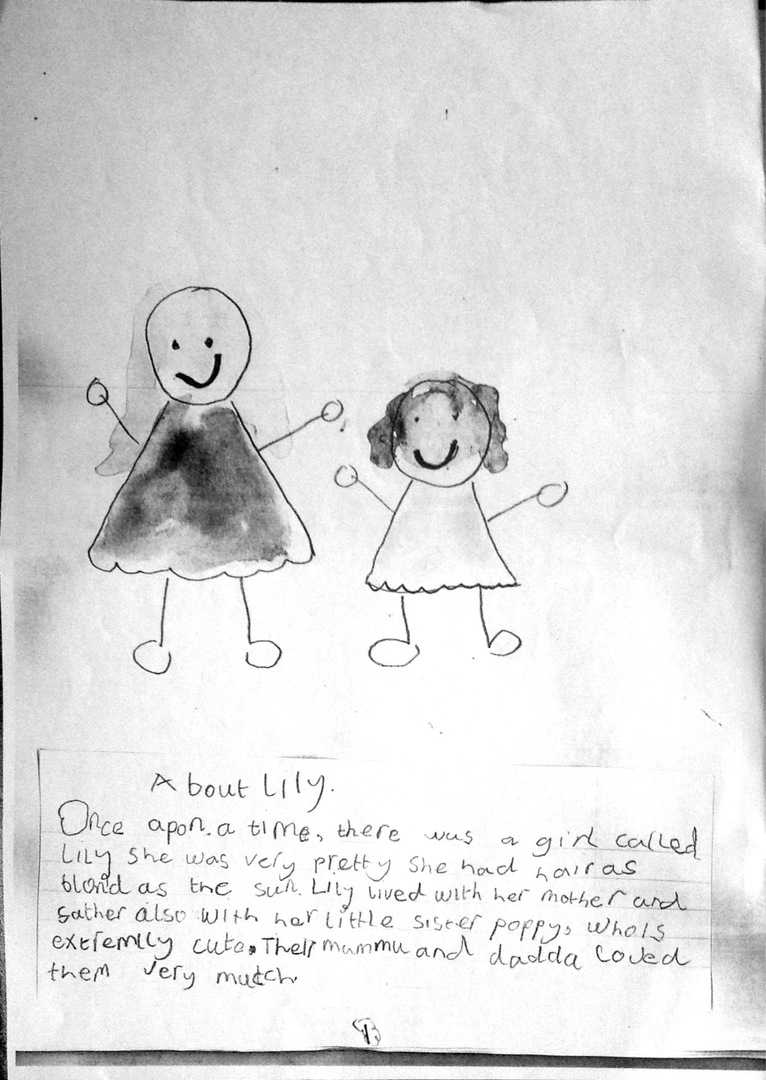 About Lily.
Once apon a time, there was a girl called
Lily she was very pretty she had hair as
blond as the sun. Lily lived with her mother and
father also with her little sister poppy, whois
extremlly cute. Their mummu and dadda loved
them very mutch.